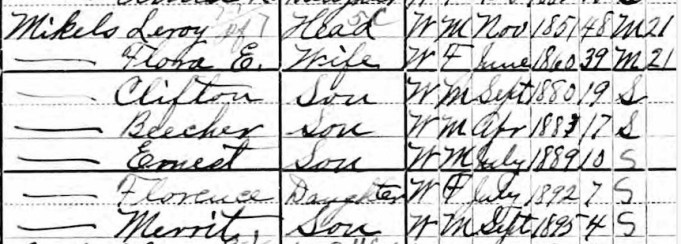 Mikels Leroy Head W M Nov 1851 48 M 21
— Flora E. Wife W F June 1860 39 M 21
— Clifton Son W M Sept 1880 19 S
— Beecher Son W M Apr 1883 17 S
— Ernest Son W M July 1889 10 S
— Florence Daughter W F July 1892 7 S
— Merrit, Son W M Sept 1895 4 S